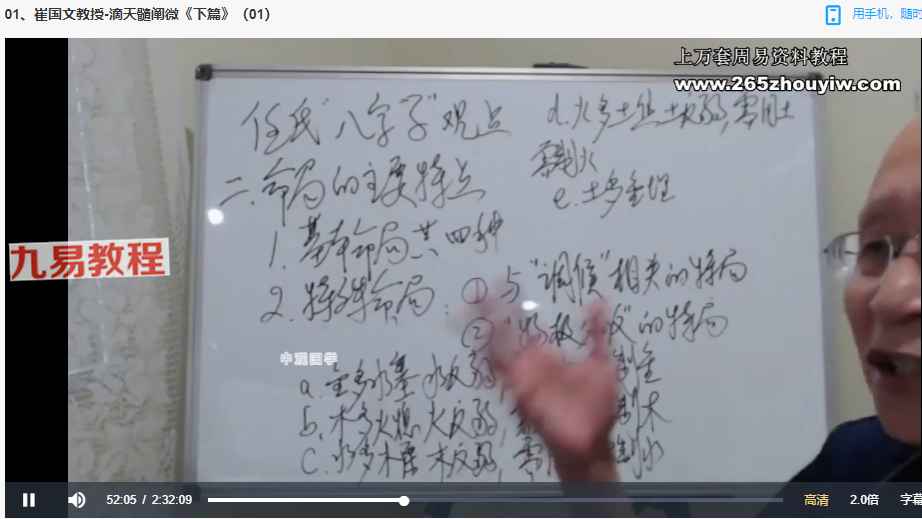 01、崔国文教授-滴天髓阐微《下篇》（01）
用手机，随时
上万套周易资料教程
www.265zhouyiw.com
九易教程
中观国学
任氏"八字学"观点
二.命局的主要特点
1.基本命局共四种
2.特殊命局：①与"调候"相关的特局
②"物极 反"的特局
a.金多水塞水反弱， 制金
b.木多火熄火反弱， 制木
c.水多木漂木反弱，需 制水
d.火多土焦土反弱，需用土
制火
e.土多金埋
52:05 / 2:32:09
高清
2.0倍
字幕